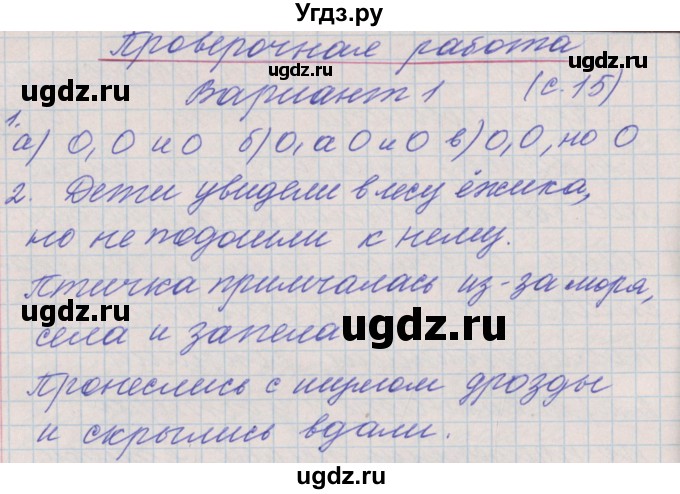 Угдз.ру
Проверочная работа
ugdz.ru
ugdz.ru
Вариант 1 (с. 15)
ugdz.ru
ugdz.ru
1.
а) О, О и О б) О, а О и О в) О, О, но О
2. Дети увидели в лесу ёжика,
но не подошли к нему.
ugdz.ru
Птичка примчалась из-за моря,
ugdz.ru
села и запела
ugdz.ru
Пронеслись с шумом дрозды
ugdz.ru
и скрылись вдали.
ugdz.ru
ugdz.ru
ugdz.ru